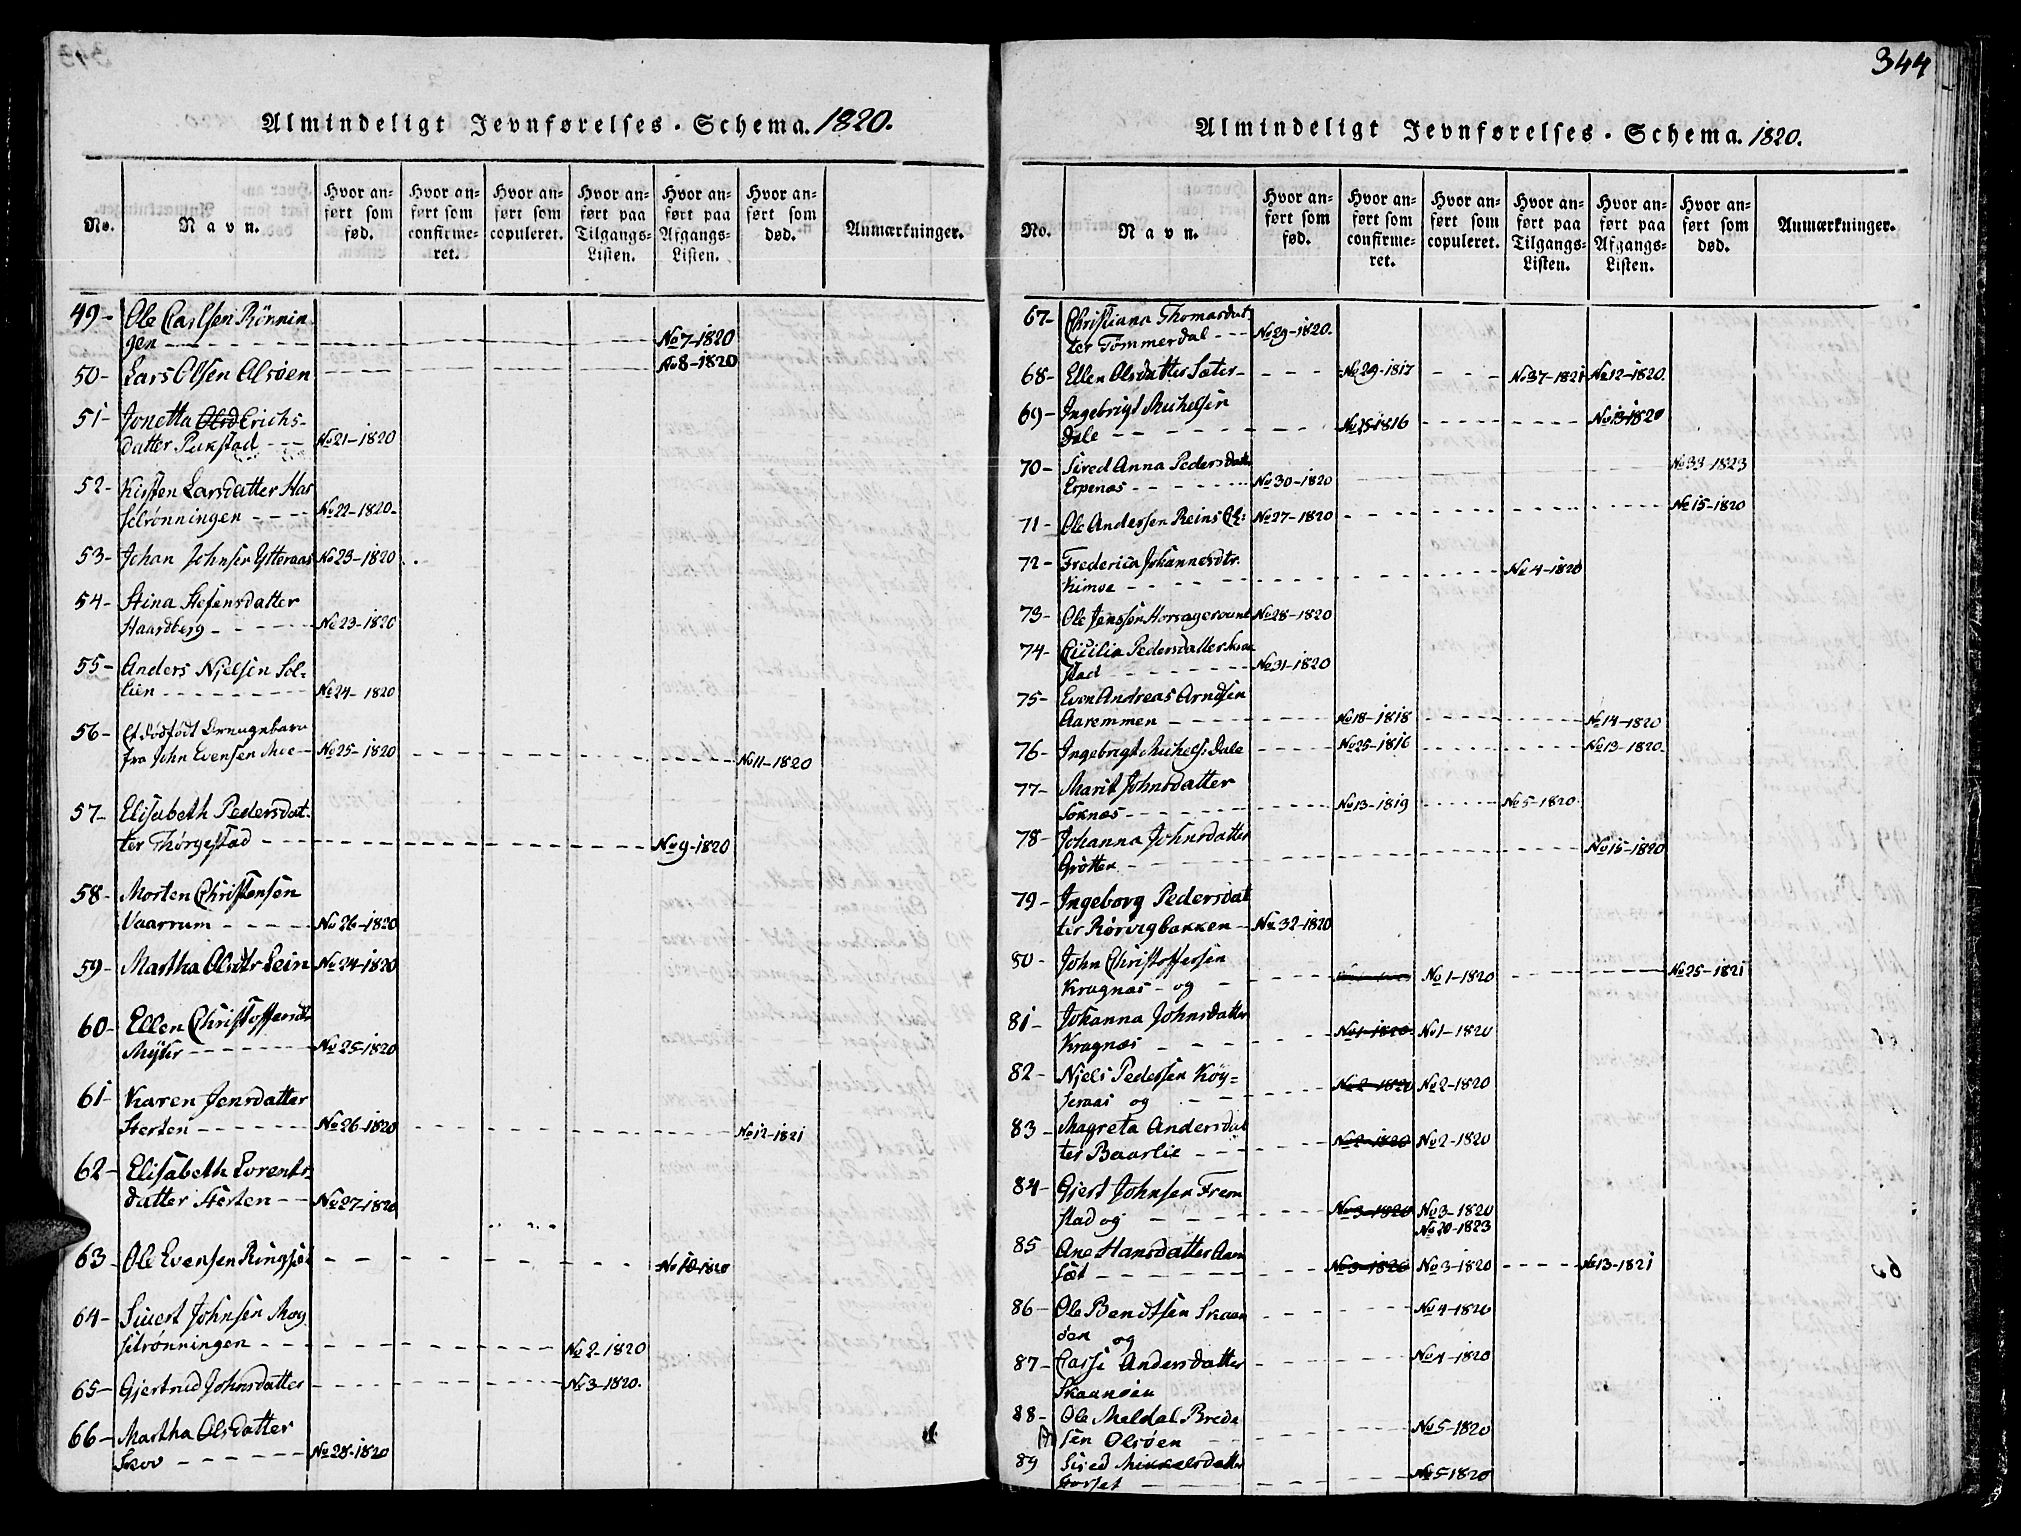 Almindeligt Jevnførelses-Schema. 1820.
No.
Navn.
Hvor an-
ført som
fød.
Hvor an-
ført som
confirme-
ret.
Hvor an-
ført som
copuleret.
Hvor an-
ført paa
Tilgangs-
Listen.
Hvor an-
ført paa
Afgangs-
Listen.
Hvor an-
ført som
død.
Anmærkninger.
49- Ole Carlsen Rönnin-
gen No 7-1820
50- Lars Olsen Olsöen No 8-1820
51- Jonetta Erichs-
datter No 21-1820
52- Kirsten Larsdatter Has
selrønningen No 22-1820
53- Johan Johnsen Ytteraas No 23-1820
54- Stina Stefensdatter
Haardberg No 23-1820
55- Anders Nielsen Sol-
lien No 24-1820
56- Et dödfödt
fra John Evensen Moe No 25-1820 No 11-1820
57- Elisabeth Pedersdat-
ter Thørgestad No 9-1820
58- Morten Christensen
Vaarrum No 26-1820
59- Martha Olsdtr Lein No 24-1820
60- Ellen Christoffersdtr
No 25-1820
61- Karen Jensdatter
Sterten No 26-1820 No 12-1821
62- Elisabeth Lorents-
datter Sterten No 27-1820
63- Ole Evensen No 10-1820
64- Siuert Johnsen
selrønningen No 2-1820
65- Gjertrud Johnsdatter No 3-1820.
66- Martha Olsdatter
Skov No 28-1820
344
Almindeligt Jevnførelses-Schema. 1820.
No.
Navn.
Hvor an-
ført som
fød.
Hvor an-
ført som
confirme-
ret.
Hvor an-
ført som
copuleret.
Hvor an-
ført paa
Tilgangs-
Listen.
Hvor an-
ført paa
Afgangs-
Listen.
Hvor an-
ført som
død.
Anmærkninger.
67- Christiana Thomasdat-
ter Tømmerdal No 29-1820.
68- Ellen Olsdatter Sæter No 29-1817 No 37-1821 No 12-1820
69- Ingebrigt Michelsen
Dale No 25-1816 No 13-1820
70- Sired Anna Pedersdatter
Espenæs No 30-1820 No 33-1823
71- Ole Andersen No 27-1820 No 15-1820
72- Frederica Johannesdtr.
Kimoe No 4-1820
73- Ole Jenssen No 28-1820
74- Cicilia Pedersdatter
stad No 31-1820
75- Even Andreas Arndsen
Aaremmen No 18-1818 No 14-1820
76- Ingebrigt Michels: Dale No 25-1816 No 13-1820
77- Marit Johnsdatter
Soknæs No 13-1819 No 5-1820
78- Johanna Johnsdatter
Grötten No 15-1820
79- Ingeborg Pedersdat
ter Rørvigbakken No 32-1820
80- John Christoffersen
Kragnæs og No 1-1820 No 25-1821
81- Johanna Johnsdatter
Kragnæs No 1-1820 No 1-1820
82- Niels Pedersen Köy-
seraas og No 2-1820 No 2-1820
83- Magreta Andersdat
ter Baarlie No 2-1820 No 2-1820
84- Gjert Johnsen Frem
stad og No 3-1820 No 3-1820
No 20-1823
85 Ane Hansdatter Aam
sæt No 3-1820 No 3-1820 No 13-1821
86- Ole Bendtsen Skaan
öen og No 4-1820
87- Andersdatter
Skaanöen No 4-1820
88- Ole Meldal Brede
sen Olsöen No 5-1820
89 Sired Mikkelsdatter
No 5-1820